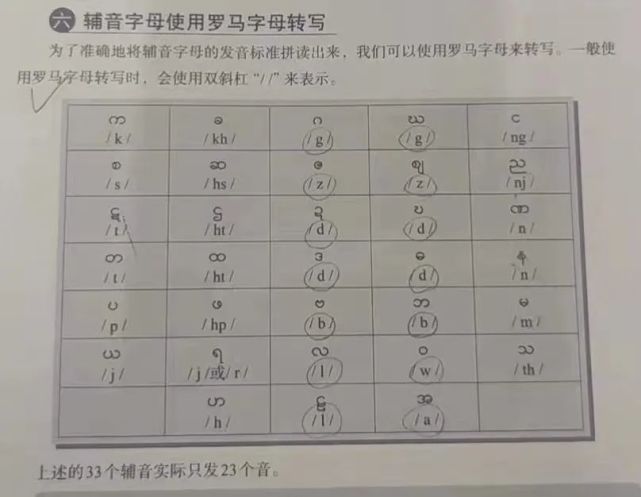 六 辅音字母使用罗马字母转写
为了准确地将辅音字母的发音标准拼读出来，我们可以使用罗马字母来转写。一般使
用罗马字母转写时，会使用双斜杠“/ /”来表示。
က ခ ဂ ဃ င
/ k / / kh / / g / / g / / ng /
စ ဆ ဇ ဈ ည
/ s / / hs / / z / / z / / nj /
ဋ ဌ ဍ ဎ ဏ
/ t / / ht / / d / / d / / n /
တ ထ ဒ ဓ န
/ t / / ht / / d / / d / / n /
ပ ဖ ဗ ဘ မ
/ p / / hp / / b / / b / / m /
ယ ရ လ ဝ သ
/ j / / j /或/ r / / l / / w / / th /
ဟ ဠ အ
/ h / / l / / a /
上述的33个辅音实际只发23个音。